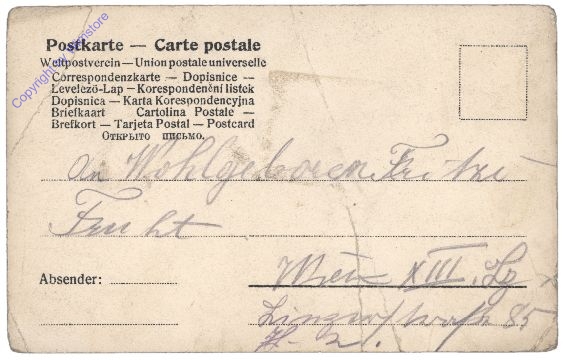 Postkarte — Carte postale
Weltpostverein — Union postale universelle
Correspondenzkarte — Dopisnice —
Levelező-Lap — Korespondenční lístek
Dopisnica — Karta Korespondencyjna
Briefkaart Cartolina Postale —
Brefkort — Tarjeta Postal — Postcard
Открыто письмо.
An Wohlgeboren Fritzi
Wien XIII.
Absender:
Linzerstraße 85